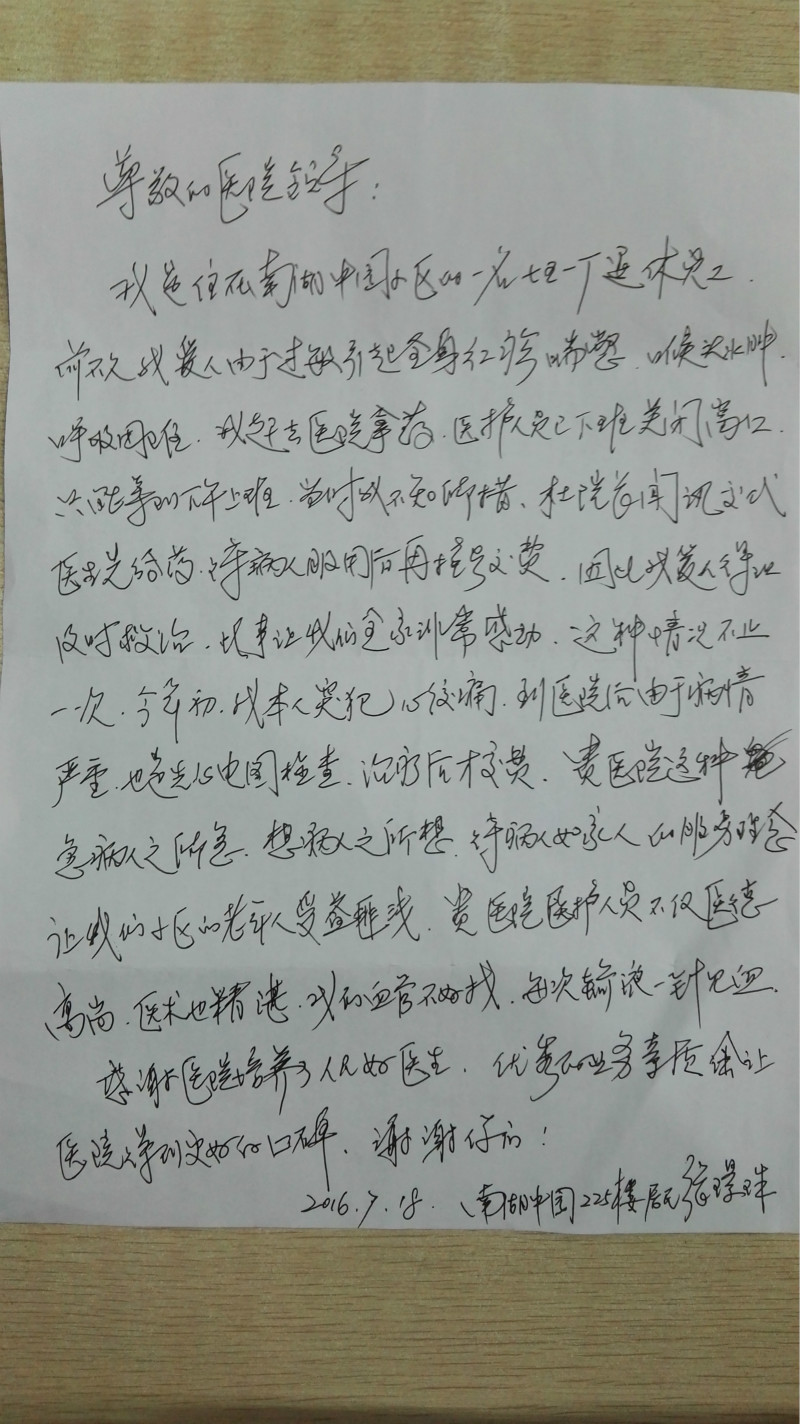 尊敬的医院领导：
我是住在南湖中国小区的一名七一厂退休员工.
前不久我爱人由于过敏引起全身红疹喘憋.喉头水肿.
呼吸困难.我赶去医院拿药.医护人员已下班关闭窗口.
只能等到下午上班.当时我不知所措、杜院长闻讯交代
医生先给药.待病人服用后再挂号交费.因此我爱人得以
及时救治.此事让我们全家非常感动.这种情况不止
一次.今年初.我本人突犯心绞痛.到医院后由于病情
严重.也是先心电图检查、治疗后才交费.贵医院这种
急病人之所急.想病人之所想.待病人如家人的服务理念
让我们小区的老年人受益匪浅.贵医院医护人员不仅医德
高尚.医术也精湛.我的血管不好找.每次输液一针见血.
感谢医院培养了人民好医生.优秀的业务素质会让
医院得到更好的口碑.谢谢你们!
2016.7.18.南湖中国225楼居民张璟珠